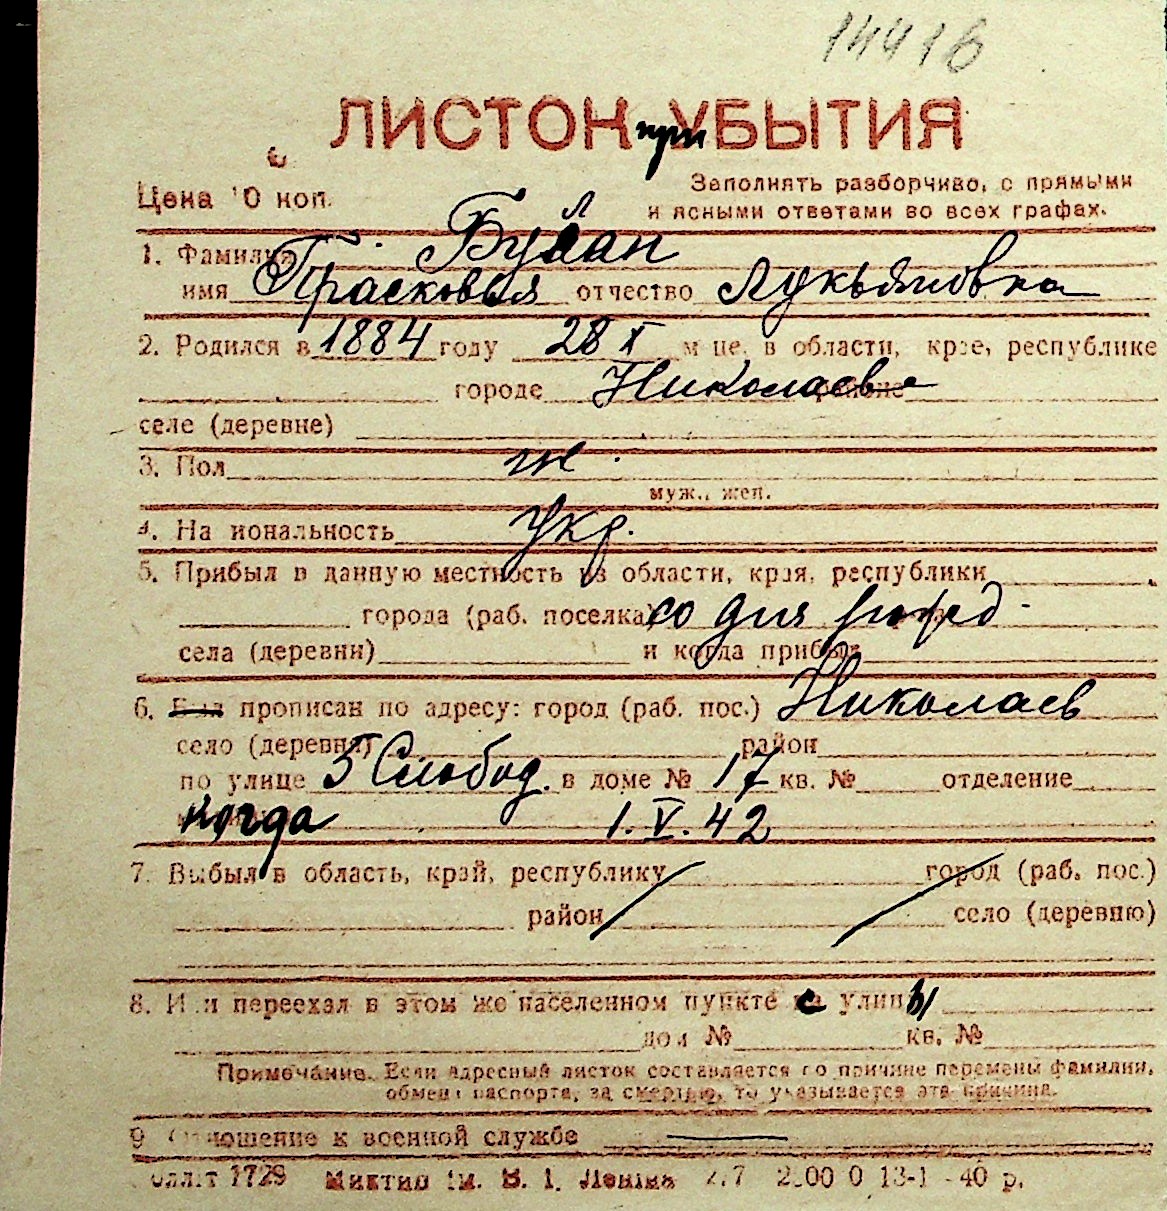 14416
ЛИСТОК при УБЫТИЯ
Цена 10 коп.
Заполнять разборчиво, с прямыми
и ясными ответами во всех графах.
1. Фамилия Булан
имя Прасковья отчество Лукьяновна
2. Родился в 1884 году 28 X м-це, в области, крае, республике
городе Николаеве
селе (деревне)
3. Пол ж.
муж., жен.
4. На иональность Укр.
5. Прибыл в данную местность из области, края, республики
города (раб. поселка) со дня рожд.
села (деревни) и когда прибыл
6. Был прописан по адресу: город (раб. пос.) Николаев
село (деревня) район
по улице 5 Слобод. в доме № 17 кв. № отделение
когда 1.V.42
7. Выбыл в область, край, республику город (раб. пос.)
район село (деревню)
8. Или переехал в этом же населенном пункте с улицы
дом № кв. №
Примечание. Если адресный листок составляется по причине перемены фамилии,
обмена паспорта, за смертью, то указывается эта причина.
9 Отношение к военной службе —
1729 ім. В. І. Леніна 2.7 2000 0 13-1 -40 р.